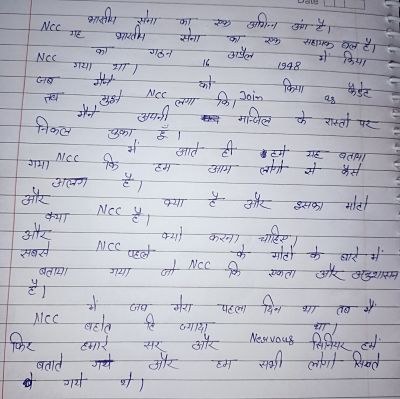 NCC भारतीय सेना का एक अभिन्न अंग है।
यह भारतीय सेना का एक सहायक बल है।
NCC का गठन 16 अप्रैल 1948 में किया
गया था।
जब मैने NCC को Join किया as कैडेट
तब मुझे लगा कि
मैने अपनी मन्जिल के रास्तो पर
निकल चुका हूं।
NCC में आते ही हमे यह बताया
गया कि हम आम लोगो से कैसे
अलग है।
और NCC क्या है और इसका मोटो
क्या है।
और NCC क्यो करना चाहिए।
सबसे पहले NCC के मोटो के बारे में
बताया गया जो NCC कि एकता और अनुशासन
है।
NCC में जब मेरा पहला दिन था तब मैं
बहोत हि ज्यादा Nervous था।
फिर हमारे सर और सिनियर हमें
बताते गये और हम सभी लोगो सिखते
गये थे।